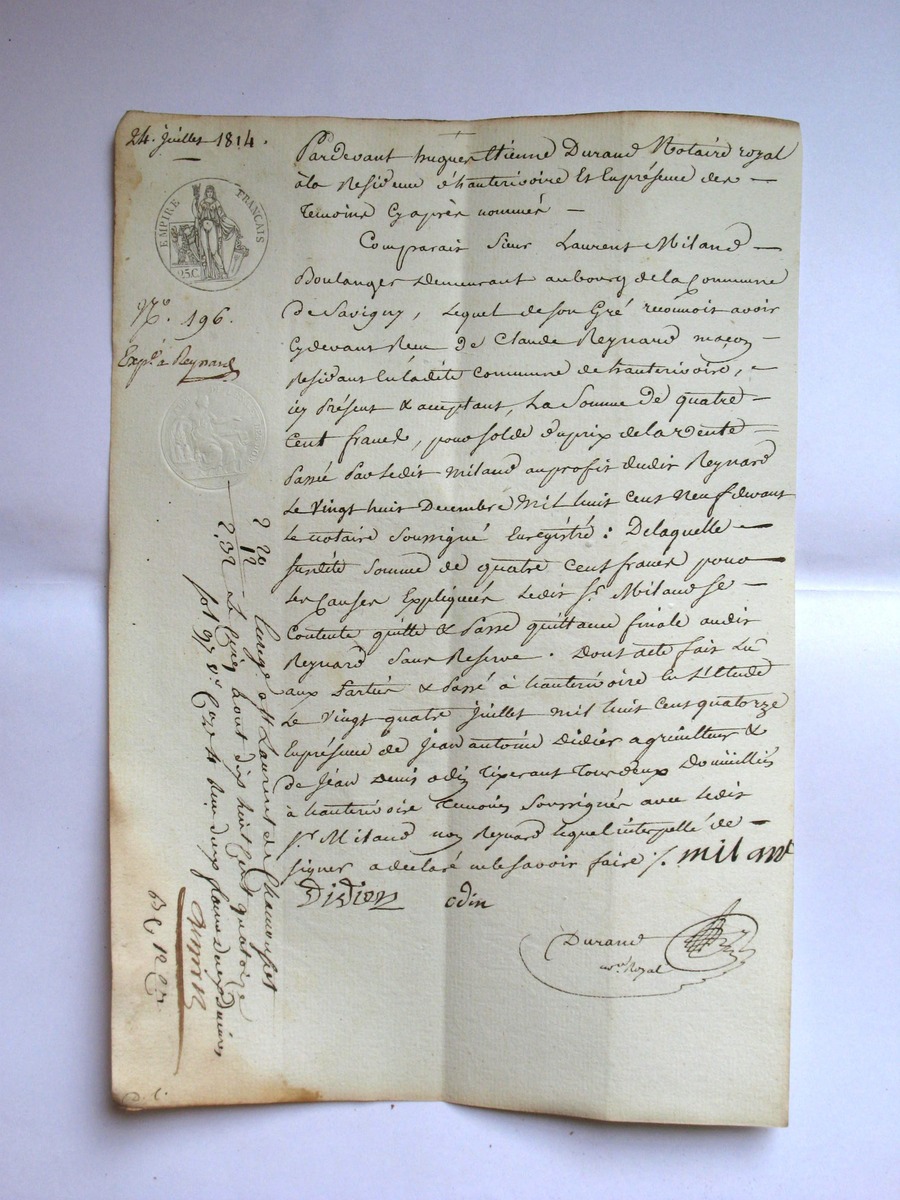 24. Juillet 1814.
EMPIRE FRANÇAIS
25 C.
N.º 196.
Exp.é à Reynard
Pardevant hugues Etienne Durand Notaire royal
àla Residence d'hauterivoire Et Enprésence des
Temoins Cyaprès nommés
Comparait Sieur Laurent Miland
Boulanger Demeurant aubourg de la Commune
de Savigny, Lequel de son Gré reconnoit avoir
Cydevant Reçu de Claude Reynard maçon
Residant Enladite Commune de hauterivoire,
icy Présent & acceptant, La Somme de quatre
Cent francs, pour Solde Duprix de la Vente
Passé Par Ledit Miland auprofit dudit Reynard
Le Vingt huit Decembre Mil huit Cent Neuf devant
le notaire Soussigné Enregistré : De laquelle
susdite Somme de quatre Cent francs pour
les Causes Expliquées Ledit S.r Miland se
Contente quitte & Passe quittance finale audit
Reynard Sans Reserve. Dont acte fait Lu
aux Parties & Passé à hauterivoire En L'Etude
Le Vingt quatre Juillet mil huit Cent quatorze
Enprésence de Jean antoine Didier agriculteur &
de Jean Denis odin Tixerant Tous deux Domiciliés
à hauterivoire Temoins Soussignés avec Ledit
S.r Miland non Reynard Lequel interpellé de
signer a declaré ne le savoir faire ./. miland
Didier odin
Durand
no.re Royal
2 20
12
2,32
Enreg.é à St Laurent de Chamousset
Le Cinq aout dix huit Cent quatorze
fol 97 v.º Case 4 Reçu deux francs